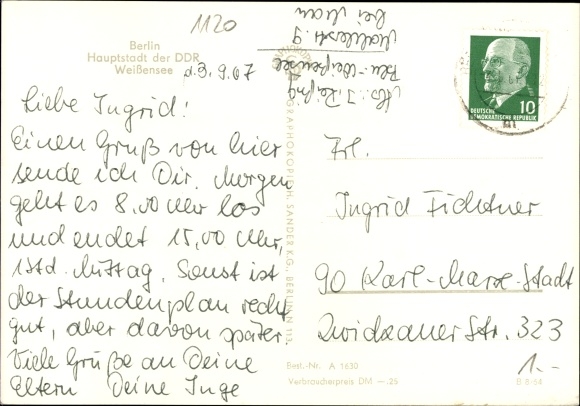 1120
Berlin
Hauptstadt der DDR
Weißensee
d. 3. 9. 67
Liebe Ingrid!
Einen Gruß von hier
sende ich Dir. Morgen
geht es 8.00 Uhr los
und endet 15.00 Uhr,
1 Std. Mittag. Sonst ist
der Stundenplan recht
gut, aber davon später
Viele Grüße an Deine
Eltern Deine Inge
Bln.-Weißensee
bei
GRAPHOKOPIE H. SANDER KG., BERLIN N 113.
10
DEUTSCHE
DEMOKRATISCHE REPUBLIK
Frl.
Ingrid Fichtner
90 Karl-Marx-Stadt
Zwickauer Str. 323
Best.-Nr. A 1630
Verbraucherpreis DM —.25
1.-
B 8-64